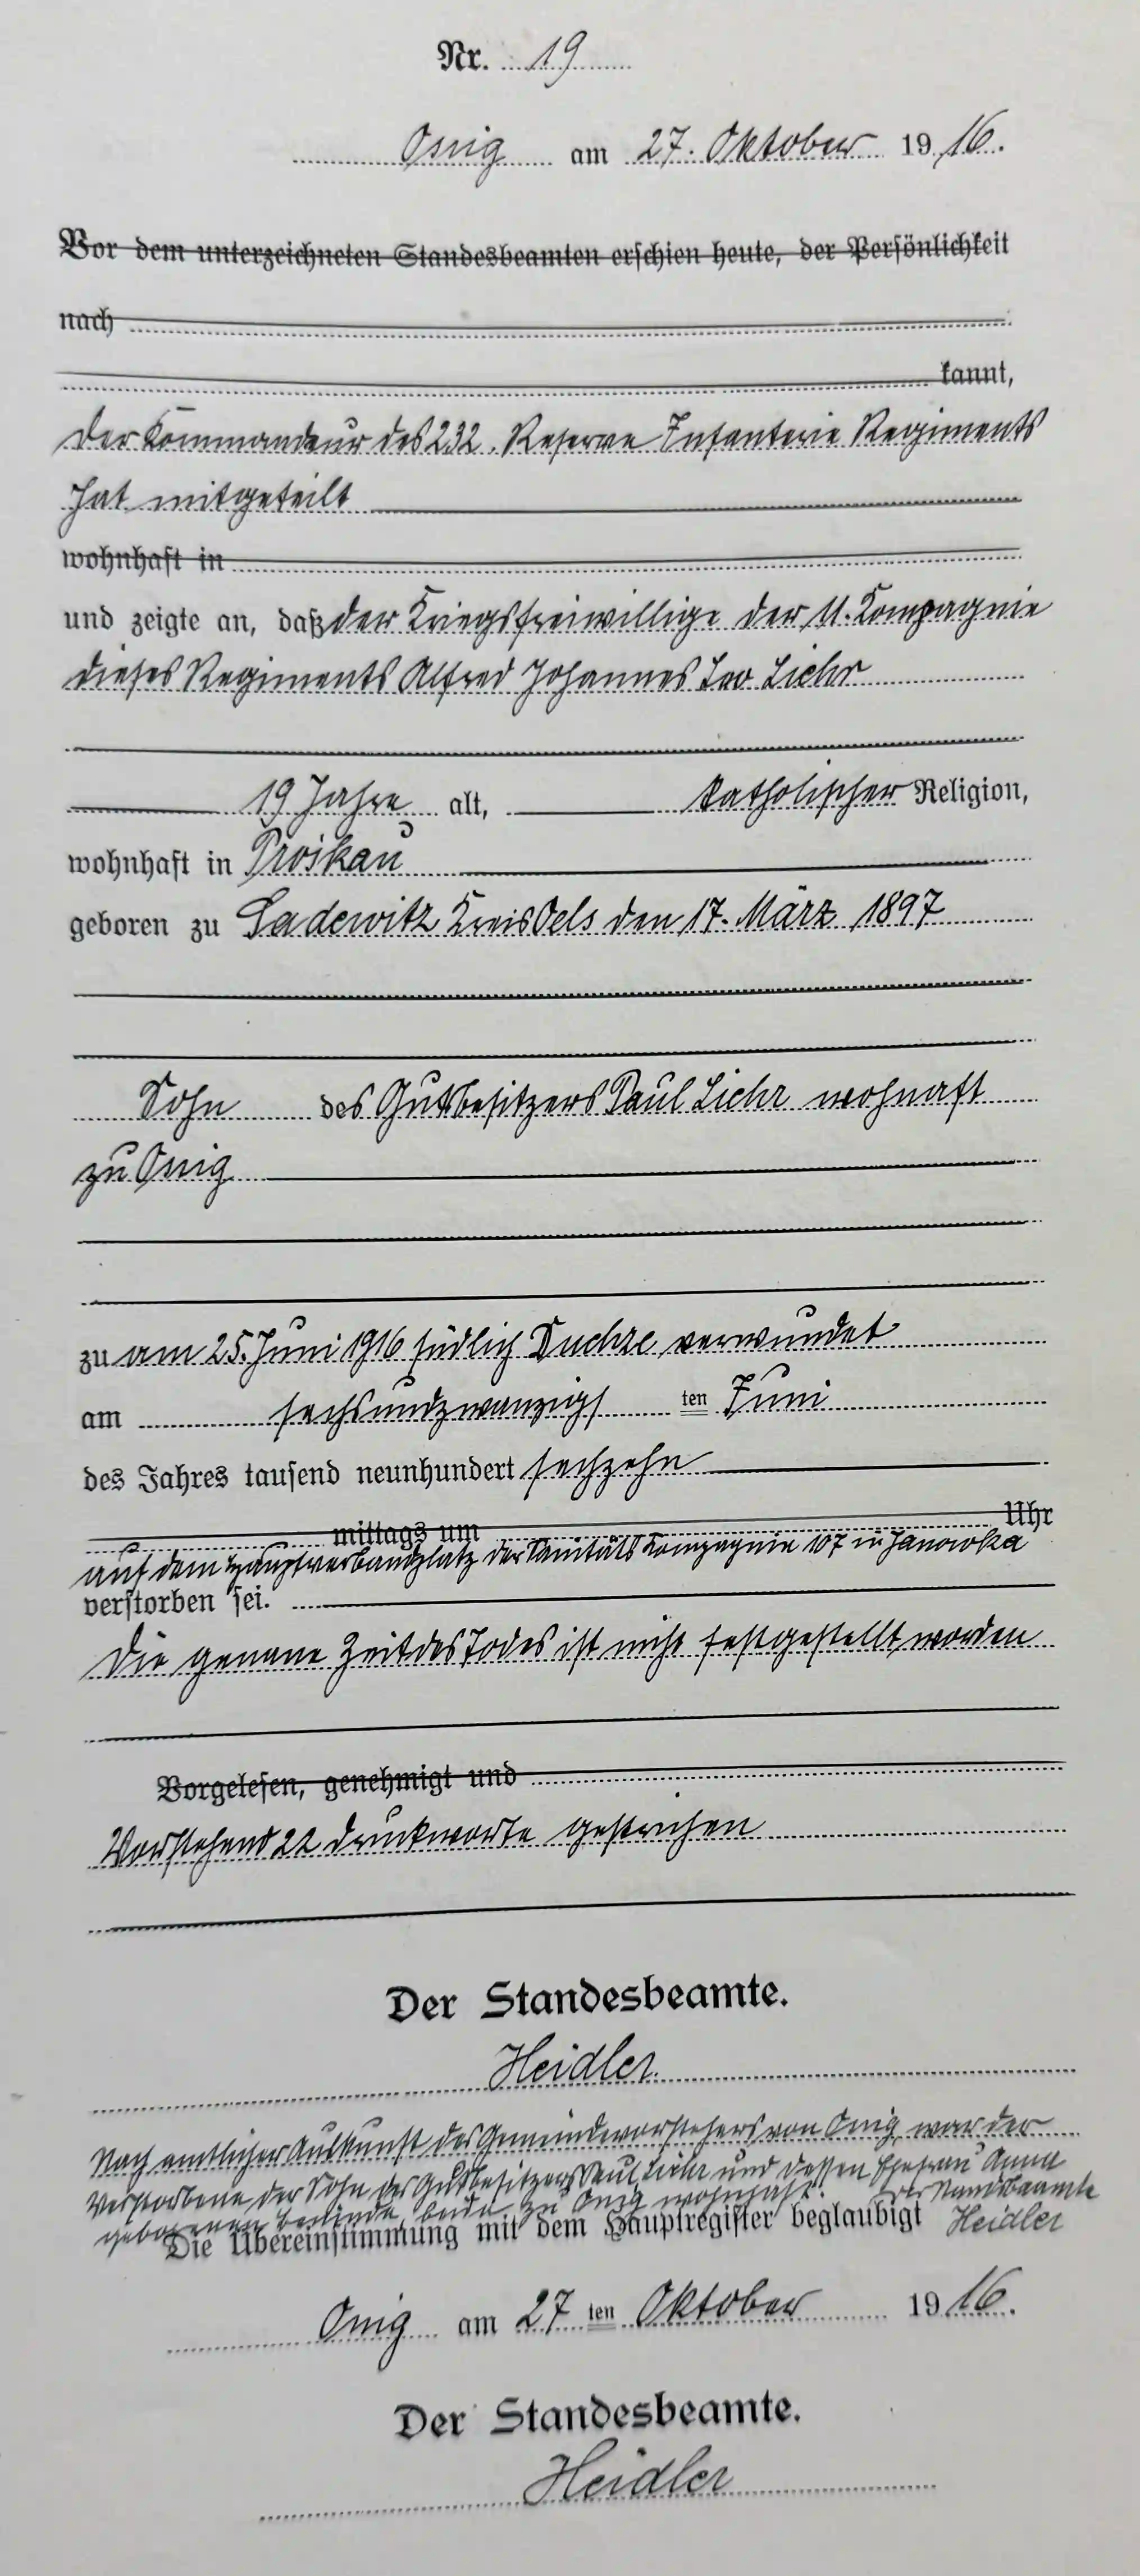 Nr. 19
Onig am 27. Oktober 1916.
Vor dem unterzeichneten Standesbeamten erschien heute, der Persönlichkeit
nach
kannt,
Der Kommandeur des 232. Reserve Infanterie Regiments
hat mitgeteilt
wohnhaft in
und zeigte an, daß der Kriegsfreiwillige der 11. Kompagnie
dieses Regiments Alfred Johannes Leo Liehr
19 Jahre alt, katholischer Religion,
wohnhaft in Proskau
geboren zu Sadewitz Kreis Oels den 17. März 1897
Sohn des Gutsbesitzers Paul Liehr wohnaft
zu Onig
zu am 25. Juni 1916 südlich verwundet
am sechsundzwanzigsten Juni
des Jahres tausend neunhundert sechzehn
mittags um Uhr
auf dem Hauptverbandplatz der Sanitäts Kompagnie 107 in Janowka
verstorben sei.
Die genaue Zeit des Todes ist nicht festgestellt worden
Vorgelesen, genehmigt und
Vorstehend 22 Druckworte gestrichen
Der Standesbeamte.
Heidler.
Nach amtlicher Auskunft des Gemeindevorstehers von Onig war der
Verstorbene der Sohn des Gutsbesitzers Paul Liehr und dessen Ehefrau Anna
geborenen beide zu Onig wohnhaft. Der Standesbeamte
Die Übereinstimmung mit dem Hauptregister beglaubigt Heidler
Onig am 27 ten Oktober 1916.
Der Standesbeamte.
Heidler